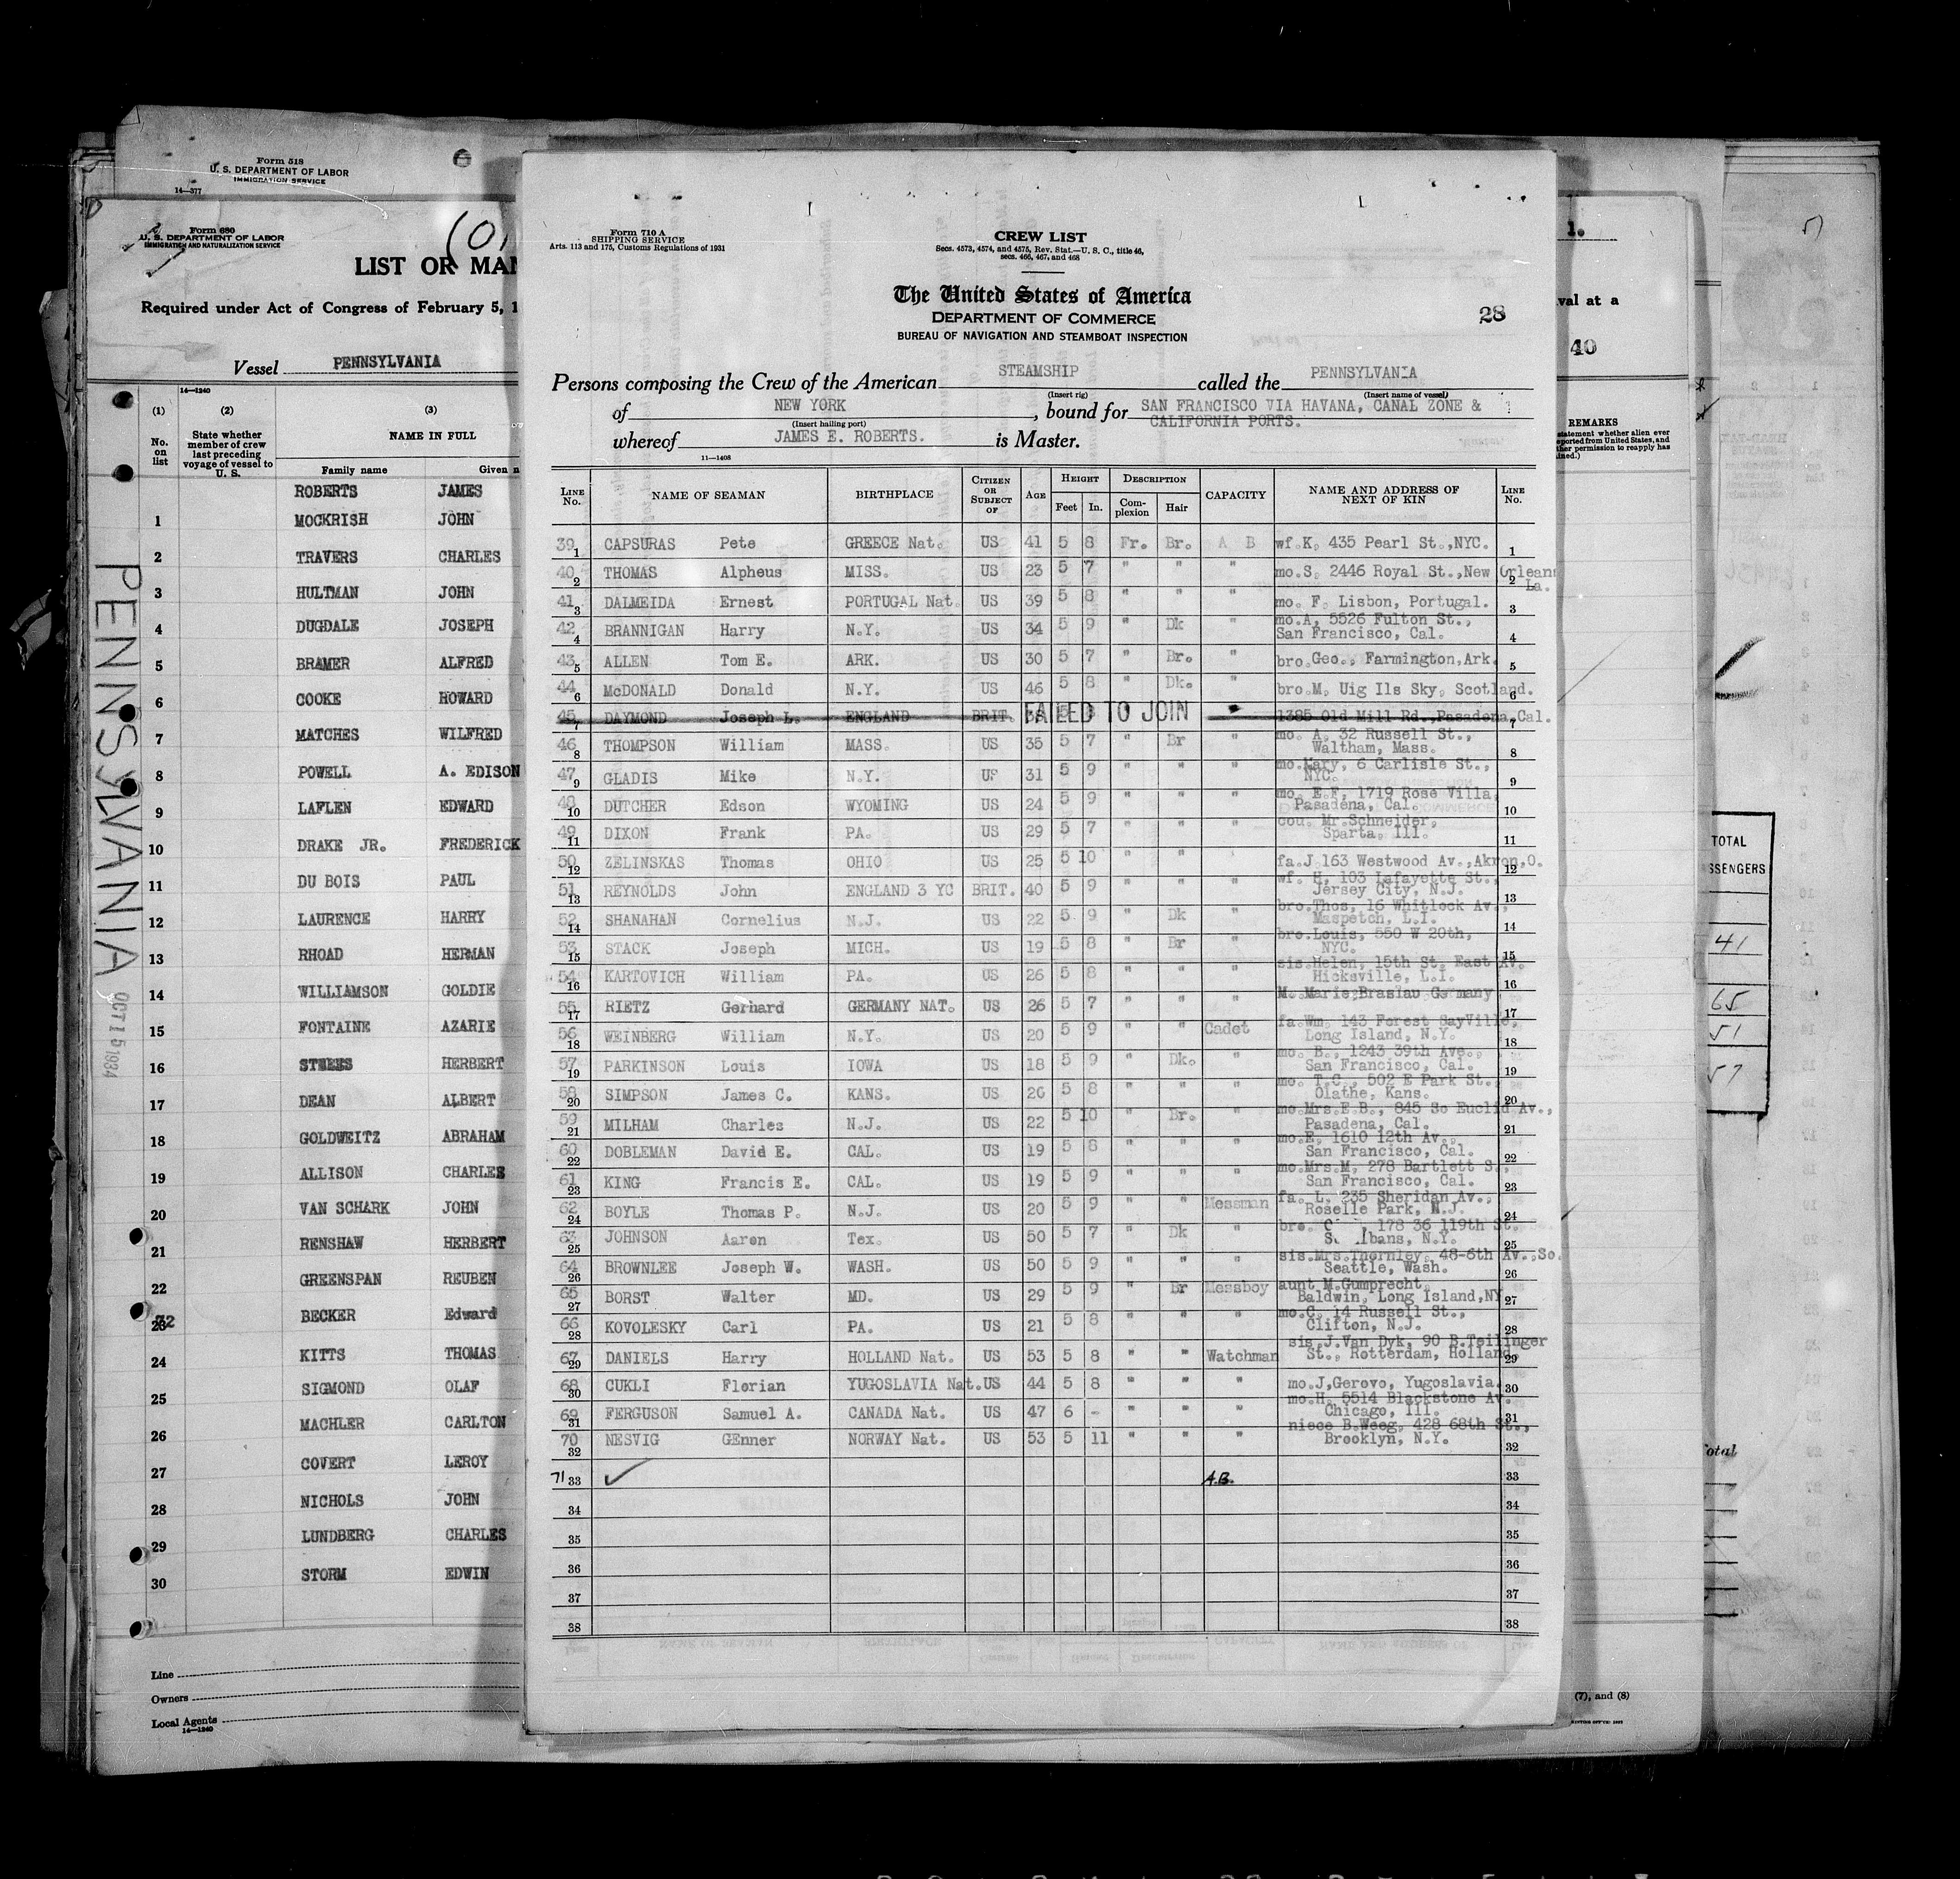 Form 518
U. S. DEPARTMENT OF LABOR
IMMIGRATION SERVICE
14—377
Form 680
U. S. DEPARTMENT OF LABOR
IMMIGRATION AND NATURALIZATION SERVICE
LIST OR MAN
Required under Act of Congress of February 5, 1
Vessel PENNSYLVANIA
14—1240
(1) (2) (3)
No. on list State whether member of crew last preceding voyage of vessel to U. S. NAME IN FULL
Family name Given n
ROBERTS JAMES
1 MOCKRISH JOHN
2 TRAVERS CHARLES
3 HULTMAN JOHN
4 DUGDALE JOSEPH
5 BRAMER ALFRED
6 COOKE HOWARD
7 MATCHES WILFRED
8 POWELL A. EDISON
9 LAFLEN EDWARD
10 DRAKE JR. FREDERICK
11 DU BOIS PAUL
12 LAURENCE HARRY
13 RHOAD HERMAN
14 WILLIAMSON GOLDIE
15 FONTAINE AZARIE
16 HERBERT
17 DEAN ALBERT
18 GOLDWEITZ ABRAHAM
19 ALLISON CHARLES
20 VAN SCHARK JOHN
21 RENSHAW HERBERT
22 GREENSPAN REUBEN
BECKER Edward
24 KITTS THOMAS
25 SIGMOND OLAF
26 MACHLER CARLTON
27 COVERT LEROY
28 NICHOLS JOHN
29 LUNDBERG CHARLES
30 STORM EDWIN
Line
Owners
Local Agents
14—1240
PENNSYLVANIA
OCT 15 1934
Form 710 A
SHIPPING SERVICE
Arts. 113 and 175, Customs Regulations of 1931
CREW LIST
Secs. 4573, 4574, and 4575, Rev. Stat.—U. S. C., title 46,
secs. 466, 467, and 468
The United States of America
DEPARTMENT OF COMMERCE
BUREAU OF NAVIGATION AND STEAMBOAT INSPECTION
28
Persons composing the Crew of the American STEAMSHIP called the PENNSYLVANIA
(Insert rig) (Insert name of vessel)
of NEW YORK, bound for SAN FRANCISCO VIA HAVANA, CANAL ZONE &
(Insert hailing port) CALIFORNIA PORTS.
whereof JAMES E. ROBERTS. is Master.
11—1408
LINE No. NAME OF SEAMAN BIRTHPLACE CITIZEN OR SUBJECT OF AGE HEIGHT Feet In. DESCRIPTION Complexion Hair CAPACITY NAME AND ADDRESS OF NEXT OF KIN LINE No.
39 1 CAPSURAS Pete GREECE Nat. US 41 5 8 Fr. Br. A B wf.K. 435 Pearl St.,NYC. 1
40 2 THOMAS Alpheus MISS. US 23 5 7 " " " mo.S. 2446 Royal St.,New Orleans La. 2
41 3 DALMEIDA Ernest PORTUGAL Nat. US 39 5 8 " " " mo. F. Lisbon, Portugal. 3
42 4 BRANNIGAN Harry N.Y. US 34 5 9 " Dk " mo.A, 5526 Fulton St., San Francisco, Cal. 4
43 5 ALLEN Tom E. ARK. US 30 5 7 " Br. " bro.Geo., Farmington,Ark. 5
44 6 McDONALD Donald N.Y. US 46 5 8 " Dk. " bro.M. Uig Ils Sky, Scotland. 6
45 7 DAYMOND Joseph L. ENGLAND BRIT. FAILED TO JOIN 1385 Old Mill Rd.,Pasadena,Cal. 7
46 8 THOMPSON William MASS. US 35 5 7 " Br " mo. A. 32 Russell St., Waltham, Mass. 8
47 9 GLADIS Mike N.Y. US 31 5 9 " " " mo.Mary, 6 Carlisle St., NYC. 9
48 10 DUTCHER Edson WYOMING US 24 5 9 " " " mo. E.F, 1719 Rose Villa, Pasadena, Cal. 10
49 11 DIXON Frank PA. US 29 5 7 " " " cou. Mr.Schneider, Sparta, Ill. 11
50 12 ZELINSKAS Thomas OHIO US 25 5 10 " " " fa.J 163 Westwood Av.,Akron,O. 12
51 13 REYNOLDS John ENGLAND 3 YC BRIT. 40 5 9 " " " wf. H, 103 Lafayette St., Jersey City, N.J. 13
52 14 SHANAHAN Cornelius N.J. US 22 5 9 " Dk " bro.Thos, 16 Whitlock Av., Maspetch, L.I. 14
53 15 STACK Joseph MICH. US 19 5 8 " Br " bro.Louis, 550 W 20th, NYC. 15
54 16 KARTOVICH William PA. US 26 5 8 " " " sis.Helen, 15th St. East Av. Hicksville, L.I. 16
55 17 RIETZ Gerhard GERMANY NAT. US 26 5 7 " " " M. Marie,Braslau Germany 17
56 18 WEINBERG William N.Y. US 20 5 9 " " Cadet fa.Wm. 143 Forest SayVille, Long Island, N.Y. 18
57 19 PARKINSON Louis IOWA US 18 5 9 " Dk. " mo. B., 1243 39th Ave., San Francisco, Cal. 19
58 20 SIMPSON James C. KANS. US 26 5 8 " " " mo. T.C., 502 E Park St., Olathe, Kans. 20
59 21 MILHAM Charles N.J. US 22 5 10 " Br. " mo.Mrs.E.B., 845 So Euclid Av., Pasadena, Cal. 21
60 22 DOBLEMAN David E. CAL. US 19 5 8 " " " mo.E. 1610 12th Av., San Francisco, Cal. 22
61 23 KING Francis E. CAL. US 19 5 9 " " " mo.Mrs.M, 278 Bartlett S., San Francisco, Cal. 23
62 24 BOYLE Thomas P. N.J. US 20 5 9 " " Messman fa. L. 235 Sheridan Av., Roselle Park, N.J. 24
63 25 JOHNSON Aaron Tex. US 50 5 7 " Dk " bro. C , 178 36 119th St. lbans, N.Y. 25
64 26 BROWNLEE Joseph W. WASH. US 50 5 9 " " " sis.Mrs.Thornley, 48-6th Av.,So. Seattle, Wash. 26
65 27 BORST Walter MD. US 29 5 9 " Br Messboy aunt M.Gumprecht, Baldwin, Long Island,NY 27
66 28 KOVOLESKY Carl PA. US 21 5 8 " " " mo.C. 14 Russell St., Clifton, N.J. 28
67 29 DANIELS Harry HOLLAND Nat. US 53 5 8 " " Watchman sis.J.Van Dyk, 90 B.Teilinger St., Rotterdam, Holland. 29
68 30 CUKLI Florian YUGOSLAVIA Nat. US 44 5 8 " " " mo.J,Gerovo, Yugoslavia. 30
69 31 FERGUSON Samuel A. CANADA Nat. US 47 6 - " " " mo.H. 5514 Blackstone Av. Chicago, Ill. 31
70 32 NESVIG GEnner NORWAY Nat. US 53 5 11 " " " niece B.Weeg, 428 68th St., Brooklyn, N.Y. 32
71 33 ✓ A.B. 33
34 34
35 35
36 36
37 37
38 38
1.
val at a
40
REMARKS
TOTAL
SSENGERS
41
65
51
57
otal
(7), and (8)